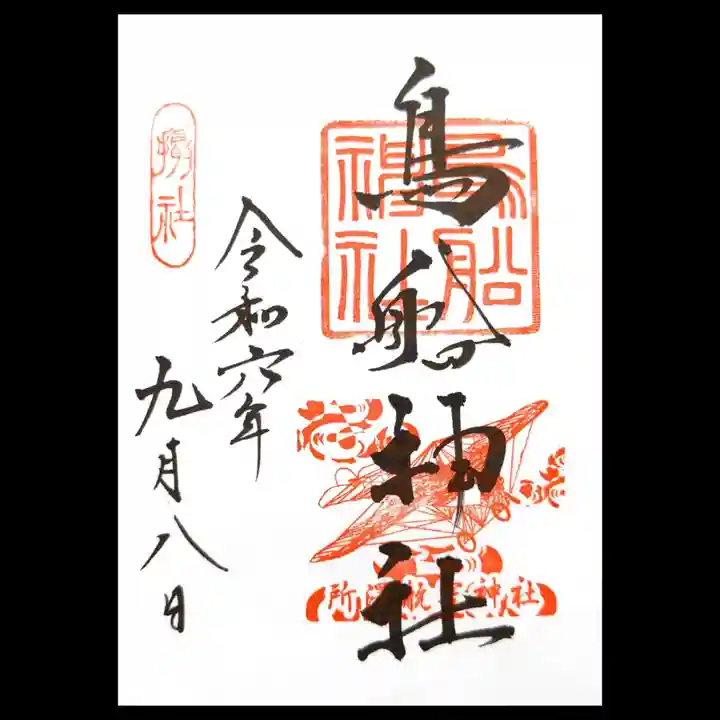 鳥船神社
鳥船
神社
所澤航空神社
令和六年
九月八日